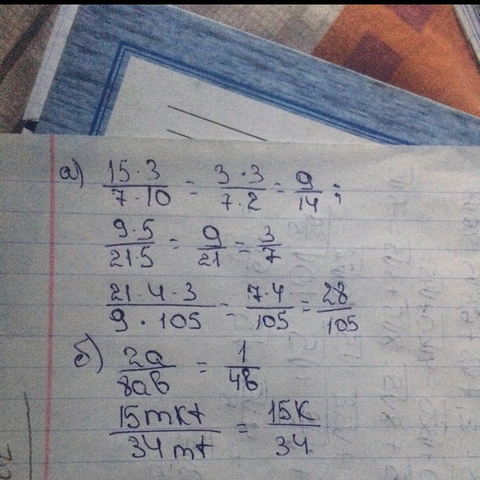 а) 15·3/7·10 = 3·3/7·2 = 9/14;
9·5/21·5 = 9/21 = 3/7
21·4·3/9·105 = 7·4/105 = 28/105
б) 2a/8ab = 1/4b
15mkt/34mt = 15k/34